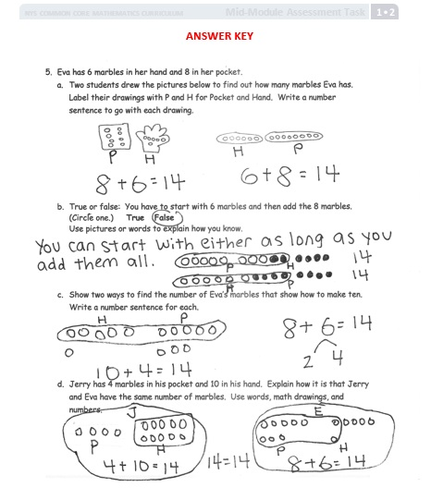 NYS COMMON CORE MATHEMATICS CURRICULUM Mid-Module Assessment Task 1•2
ANSWER KEY
5. Eva has 6 marbles in her hand and 8 in her pocket.
a. Two students drew the pictures below to find out how many marbles Eva has.
Label their drawings with P and H for Pocket and Hand. Write a number
sentence to go with each drawing.
P H H P
8+6=14 6+8=14
b. True or false: You have to start with 6 marbles and then add the 8 marbles.
(Circle one.) True False
Use pictures or words to explain how you know.
You can start with either as long as you
add them all. P H 14
H P 14
c. Show two ways to find the number of Eva's marbles that show how to make ten.
Write a number sentence for each.
H P
8+6=14
2 4
10+4=14
d. Jerry has 4 marbles in his pocket and 10 in his hand. Explain how it is that Jerry
and Eva have the same number of marbles. Use words, math drawings, and
numbers. J E
P H P H
4+10=14 14=14 8+6=14